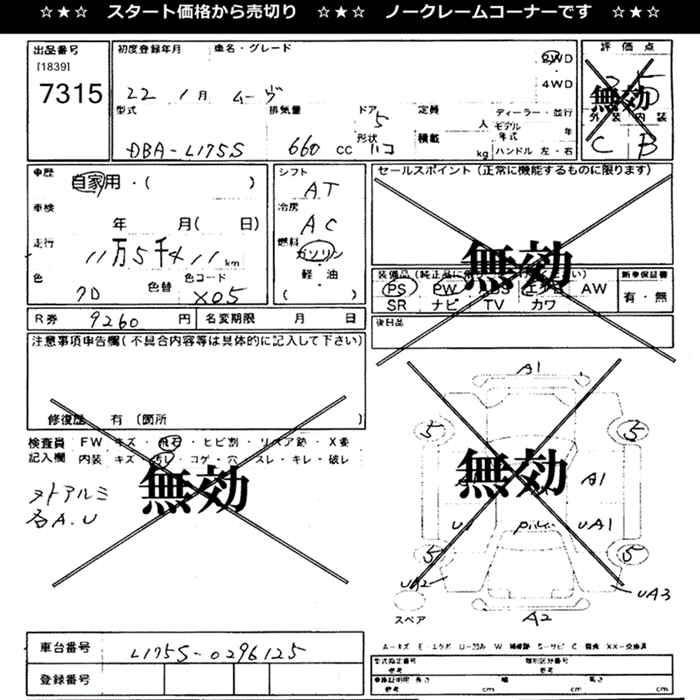 ☆★☆ スタート価格から売切り ☆★☆ ノークレームコーナーです ☆★☆
出品番号
[1839]
7315
初度登録年月 車名・グレード
22 1月 ムーヴ
2WD
4WD
評価点
無効
外装 内装
C B
型式 排気量 ドア 定員 ディーラー・並行
DBA-L175S 660 cc 5 人 モデル年式 年
形状 積載 kg ハンドル 左・右
ハコ
車歴 自家用・( )
車検 年 月( 日)
走行 11万5千 km
色 色替 色コード
X05
シフト AT
冷房 AC
燃料 ガソリン・軽油
( )
セールスポイント (正常に機能するものに限ります)
無効
PS PW AW
SR ナビ TV カワ
新車保証書
有・無
後日品
R券 9260 円 名変期限 月 日
注意事項申告欄(不具合内容等は具体的に記入して下さい)
修復歴 有 (箇所 )
検査員 FW キズ・飛石・ヒビ割・リペア跡・X要
記入欄 内装 キズ・汚レ・コゲ・穴・スレ・キレ・破レ
無効
各A.U
A1
5 5
無効
A1
U1 UA1
5 5
UA2 UA3
A2
スペア
車台番号 L175S-0296125
登録番号
型式指定番号 類別区分番号
参考 参考
長さ 幅 高さ
参考 cm cm cm